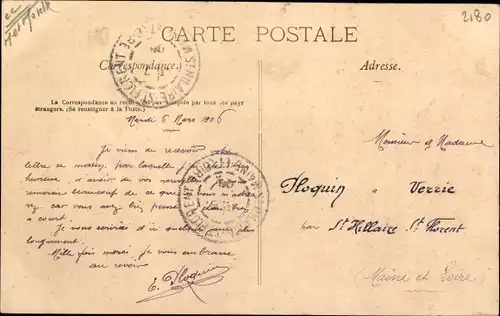 2180
CARTE POSTALE
Correspondance.
Adresse.
La Correspondance au recto n'est pas acceptée par tous les pays
étrangers. (Se renseigner à la Poste.)
Mardi 6 Mars 1906
Je viens de recevoir votre
lettre ce matin, par laquelle je
heureuse, d'avoir de vos nouvelles
remercie beaucoup de ce que vous
car vous avez bien pensé
a
Je vous écrirai d'ici quelques jours plus
longuement.
Mille fois merci, je vous embrasse
au revoir
E. Floquin
Monsieur et Madame
Floquin a Verrie
par St Hillaire St Florent
(Maine et Loire)